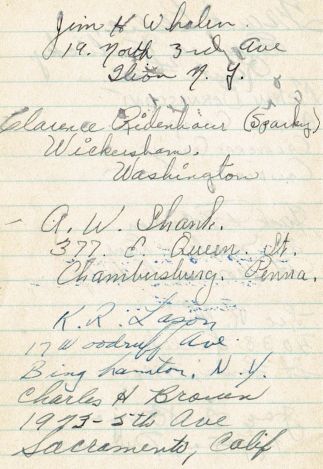 Jim H Whalen.
19. North 3rd Ave
Ilion N. Y.
Clarence Ridenhour (Sparky)
Wickersham,
Washington
- A. W. Shank.
377 E. Queen. St.
Chambersburg. Penna.
K. R. Lason
17 Woodruff Ave.
Binghamton, N. Y.
Charles H Brown
1973-5th Ave
Sacramento, Calif